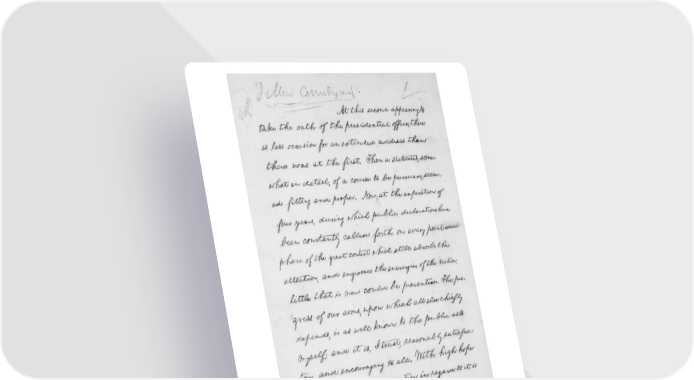 Fellow Countrymen.
At this second appearing to
take the oath of the presidential office, there
is less occasion for an extended address than
there was at the first. Then a statement, some
what in detail, of a course to be pursued, seem
ed fitting and proper. Now, at the expiration of
four years, during which public declarations have
been constantly called forth on every point and
phase of the great contest which still absorbs the
attention, and engrosses the energies of the nation,
little that is new could be presented. The pro
gress of our arms, upon which all else chiefly
depends, is as well known to the public as to
myself; and it is, I trust, reasonably satisfac
tory and encouraging to all. With high hope
in regard to it is